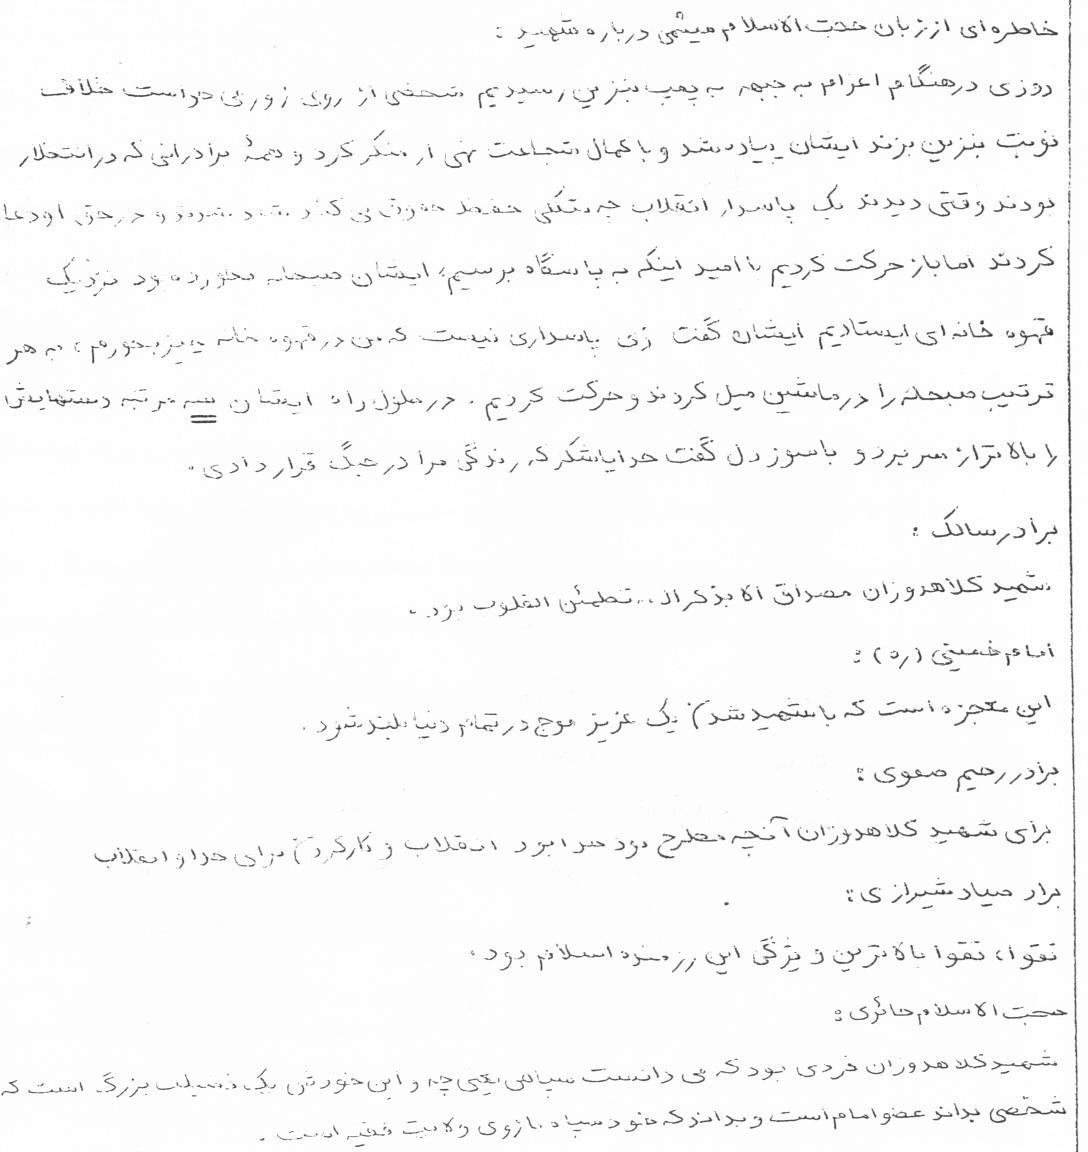 خاطره‌ای از زبان حجت الاسلام میثمی درباره شهید :
روزی در هنگام اعزام به جبهه به پمپ بنزین رسیدیم شخصی از روی زور می خواست خلاف
نوبت بنزین بزند ایشان پیاده شد و با کمال شجاعت نهی از منکر کرد و همۀ برادرانی که در انتظار
بودند وقتی دیدند یک پاسدار انقلاب چه شکلی حفظ حقوق می کند و در حق او دعا
کردند اما باز حرکت کردیم با امید اینکه به پاسگاه برسیم، ایشان صبحانه نخورده بود نزدیک
قهوه خانه ای ایستادیم ایشان گفت زی پاسداری نیست که من در قهوه خانه چیز بخورم، به هر
ترتیب صبحانه را در ماشین میل کردند و حرکت کردیم . در طول راه ایشان سه مرتبه دستهایش
را بالاتر از سر برد و با سوز دل گفت خدایا شکر که زندگی مرا در جنگ قرار دادی .
برادر سالک :
شهید کلاهدوزان مصداق الا بذکر الله تطمئن القلوب بود .
امام خمینی (ره) :
این معجزه است که با شهید شدن یک عزیز موج در تمام دنیا بلند شود .
برادر رحیم صفوی :
برای شهید کلاهدوزان آنچه مطرح بود خدا بود انقلاب و کار کردن برای خدا و انقلاب
برادر صیاد شیرازی :
تقوا، تقوا بالاترین ویژگی این رزمنده اسلام بود .
حجت الاسلام حائری :
شهید کلاهدوزان فردی بود که می دانست سپاهی یعنی چه و این خودش یک فضیلت بزرگ است که
شخصی بداند عضو امام است و بداند که خود سپاه بازوی ولایت فقیه است .